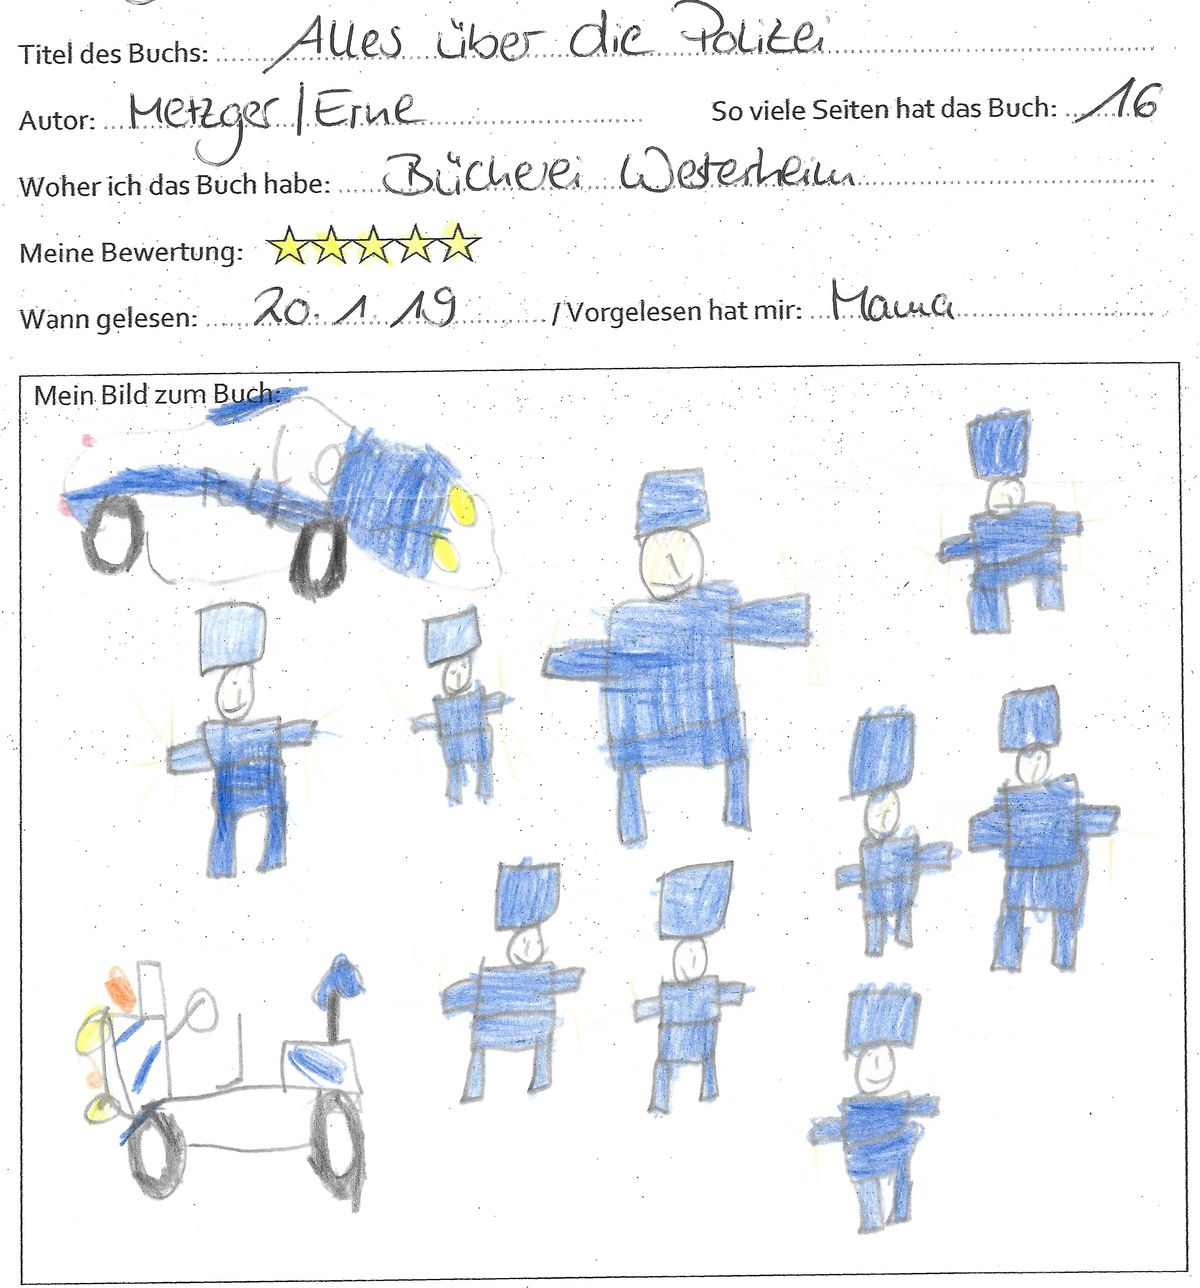 Titel des Buchs: Alles über die Polizei
Autor: Metzger/Erne So viele Seiten hat das Buch: 16
Woher ich das Buch habe: Bücherei Westerheim
Meine Bewertung:
Wann gelesen: 20.1.19 / Vorgelesen hat mir: Mama
Mein Bild zum Buch: